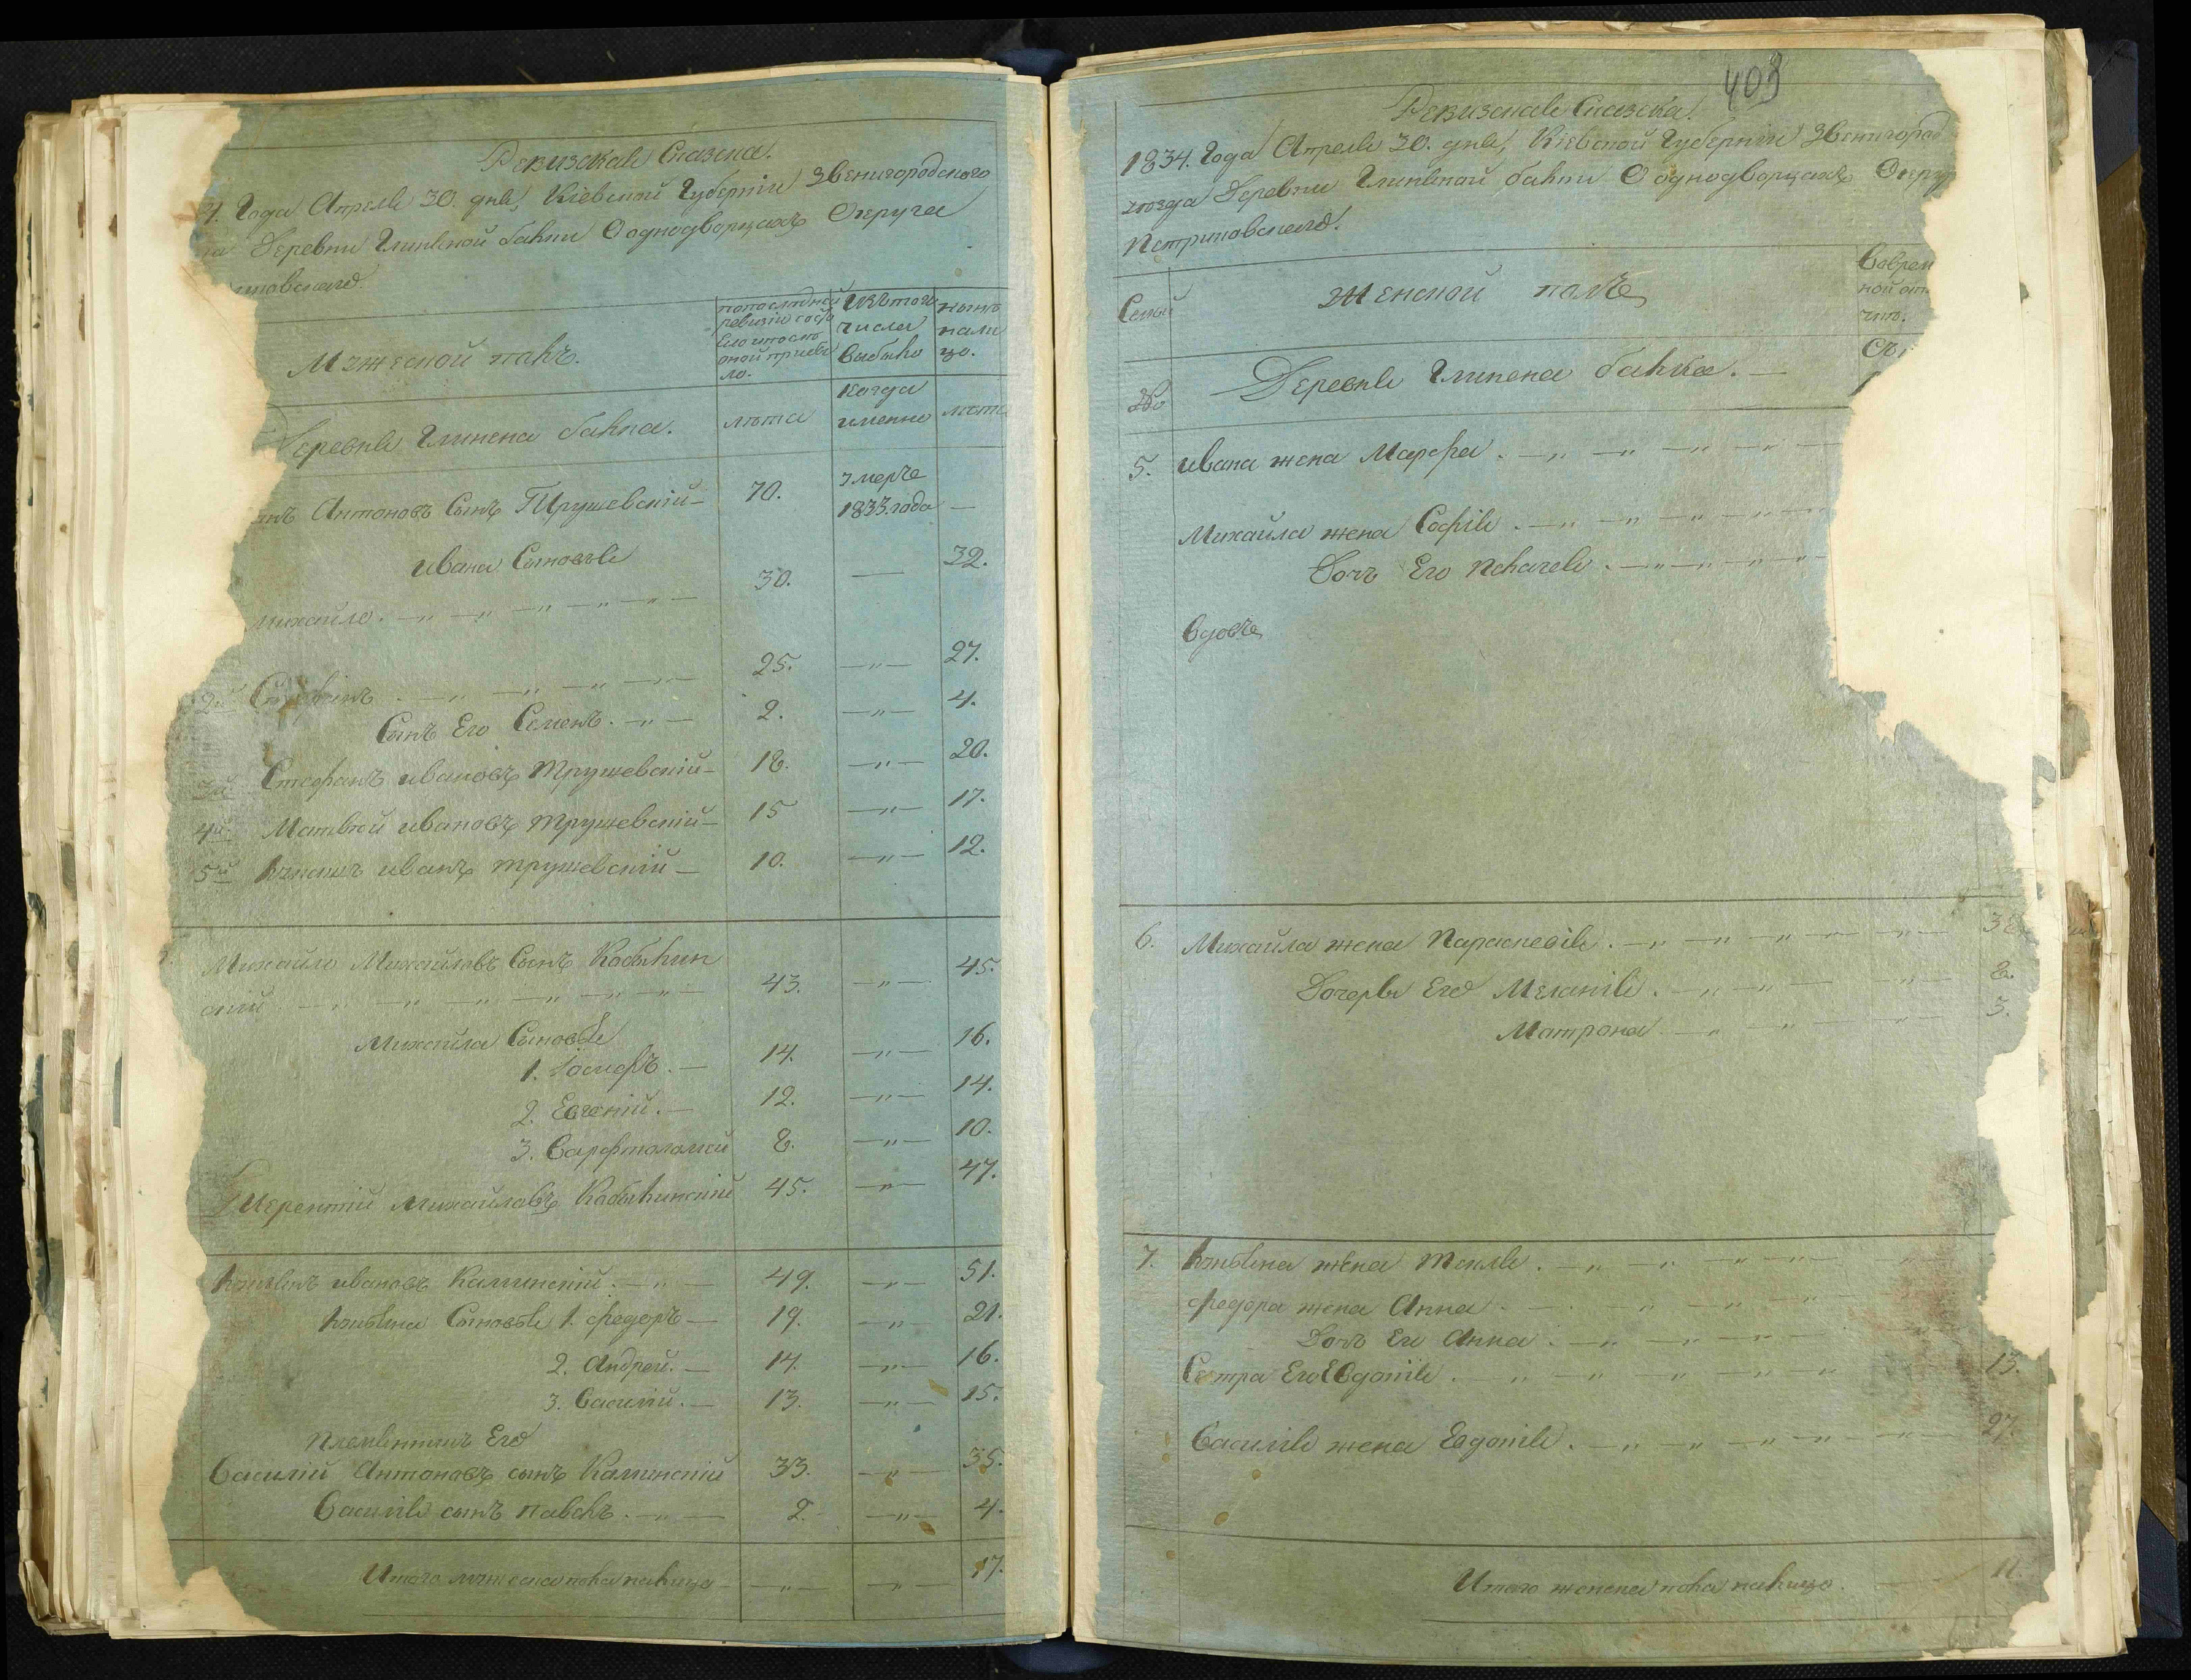 Ревизская Сказка.
4. Года Апреля 30. дня, Кіевской Губерніи Звенигородского
Деревни Глиняной балки О однодворцахъ Округа
мужеской полъ.
попоследней
ревизіи состо
яло ипосле
оной прибы
ло.
Изътого
числа
выбыло
ныне
нали
цо.
Деревня Глинена балка.
лѣта
когда
именно
лѣта
Антоновъ Сынъ Трушевскій 70.
умерлъ
1833. года
Ивана Сыновья
михайло. 30. 32.
2й 25. 27.
Сынъ Его Семенъ. 2. 4.
3й Стефанъ ивановъ Трушевскій 18. 20.
4й Матвѣй ивановъ трушевскій 15 17.
5й ивановъ трушевскій 10. 12.
Михайло Михайловъ Сынъ Кобылин
скій 43. 45.
Михайла Сыновья
1. Іосифъ. 14. 16.
2. Евгеній. 12. 14.
3. Варфталомей 8. 10.
Терентій Михайловъ Кобылинскій 45. 47.
ивановъ Калинскій. 49. 51.
Сыновья 1. федоръ 19. 21.
2. Андрей. 14. 16.
3. Василій. 13. 15.
племянникъ Его
Василій Антоновъ сынъ Калинскій 33. 35.
Василія сынъ павелъ. 2. 4.
Итого мужеска пола налицо 17.
409
Ревизская Сказка.
1834. Года Апреля 30. дня, Кіевской Губерніи Звенигород
уезда Деревни Глиняной балки О однодворцахъ Окру
Петриковскаго.
Семьи
Женской полъ
Воврем
ной от
что.
Деревня Глинена балка.
5. ивана жена Марфа.
Михайла жена Софія.
Дочъ Его Пелагея.
вдовъ
6. Михайла жена Параскевія. 38
Дочеря Его Меланія. 8.
Матрона 3.
7. жена Текля.
федора жена Анна.
Дочъ Его Анна.
Сестра Его Евдокія. 13.
Василія жена Евдокія. 27.
Итого женска пола налицо. 11.